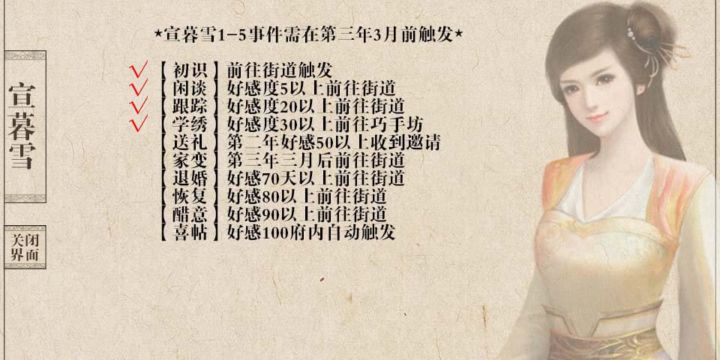 *宣暮雪1-5事件需在第三年3月前触发*
宣暮雪
【初识】前往街道触发
【闲谈】好感度5以上前往街道
【跟踪】好感度20以上前往街道
【学绣】好感度30以上前往巧手坊
【送礼】第二年好感50以上收到邀请
【家变】第三年三月后前往街道
【退婚】好感70天以上前往街道
【恢复】好感80以上前往街道
【醋意】好感90以上前往街道
【喜帖】好感100府内自动触发
关闭
界面